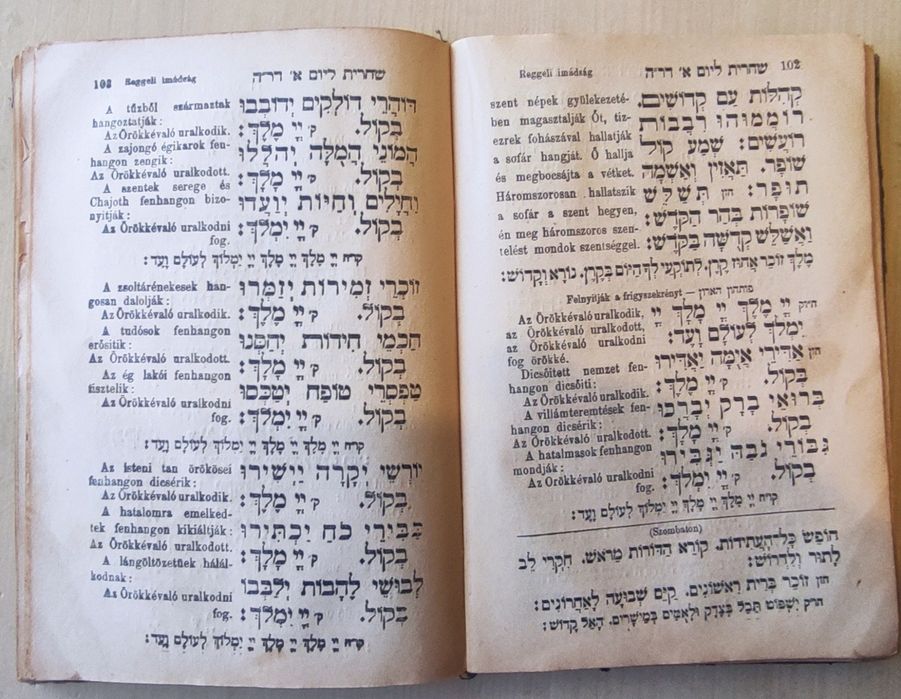 Reggeli imádság שחרית ליום א׳ דר״ה 102
קְהִלּוֹת עַם קְדוֹשִׁים.
רוֹמְמוּהוּ רִבְבוֹת
רוֹעֲשִׁים: שְׁמַע קוֹל
שׁוֹפָר. תַּאֲזִין וְאַשְׁמָה
תוּפָר: חזן תְּשַׁלֵּשׁ
שׁוֹפָרוֹת בְּהַר הַקֹּדֶשׁ:
וַאֲשַׁלֵּשׁ קְדֻשָּׁה בַּקֹּדֶשׁ:
szent népek gyülekezeté-
ben magasztalják Őt, tiz-
ezrek fohászával hallatják
a sofár hangját. Ő hallja
és megbocsájta a vétket.
Háromszorosan hallatszik
a sofár a szent hegyen,
én meg háromszoros szen-
telést mondok szentséggel.
מֶלֶךְ זוֹכֵר אֲחוּז קֶרֶן. לְתוֹקְעֵי לְךָ הַיּוֹם בְּקֶרֶן. נוֹרָא וְקָדוֹשׁ:
Felnyitják a frigyszekrényt — פותחין הארון
יְיָ מֶלֶךְ יְיָ מָלָךְ יְיָ
יִמְלֹךְ לְעוֹלָם וָעֶד:
חזן אַדִּירֵי אֲיֻמָּה יַאְדִּירוּ
בְקוֹל. ק׳ יְיָ מֶלֶךְ:
בְּרוּאֵי בָרָק יְבָרְכוּ
בְקוֹל. ק׳ יְיָ מָלָךְ:
גִּבּוֹרֵי גֹבַהּ יַגְבִּירוּ
בְקוֹל. ק׳ יְיָ יִמְלֹךְ:
az Örökkévaló uralkodik,
az Örökkévaló uralkodott,
az Örökkévaló uralkodni
fog örökké.
Dicsőitett nemzet fen-
hangon dicsőiti:
Az Örökkévaló uralkodik.
A villámteremtések fen-
hangon dicsérik:
Az Örökkévaló uralkodott.
A hatalmasok fenhangon
mondják:
Az Örökkévaló uralkodni
fog.
קו״ח יְיָ מֶלֶךְ יְיָ מָלָךְ יְיָ יִמְלוֹךְ לְעוֹלָם וָעֶד:
(Szombaton)
חוֹפֵשׂ כָּל־הָעֲתִידוֹת. קוֹרֵא הַדּוֹרוֹת מֵרֹאשׁ. חִקְרֵי לֵב
לָתוּר וְלִדְרוֹשׁ:
חזן זוֹכֵר בְּרִית רִאשׁוֹנִים. קַיֵּם שְׁבוּעָה לָאַחֲרוֹנִים:
יִשְׁפּוֹט תֵּבֵל בְּצֶדֶק וּלְאֻמִּים בְּמֵישָׁרִים. הָאֵל קָדוֹשׁ:
Reggeli imádság שחרית ליום א׳ דר״ה
דּוֹהֲרֵי דוֹלְקִים יְדוֹבְבוּ
בְקוֹל. ק׳ יְיָ מֶלֶךְ:
הֲמוֹנֵי הֲמֻלָּה יְהַלְּלוּ
בְקוֹל. ק׳ יְיָ מָלָךְ:
וַחֲיָלִים וְחַיּוֹת יְוַעֲדוּ
בְקוֹל. ק׳ יְיָ יִמְלֹךְ:
A tűzből származtak
hangoztatják:
Az Örökkévaló uralkodik.
A zajongó égikarok fen-
hangon zengik:
Az Örökkévaló uralkodott.
A szentek serege és
Chajoth fenhangon bizo-
nyitják:
Az Örökkévaló uralkodni
fog.
קו״ח יְיָ מֶלֶךְ יְיָ מָלָךְ יְיָ יִמְלוֹךְ לְעוֹלָם וָעֶד:
זוֹכְרֵי זְמִירוֹת יְזַמְּרוּ
בְקוֹל. ק׳ יְיָ מֶלֶךְ:
חַכְמֵי חִידוֹת יְחַסְּנוּ
בְקוֹל. ק׳ יְיָ מָלָךְ:
טַפְסְרֵי טְפוּחִים יְטַכְּסוּ
בְקוֹל. ק׳ יְיָ יִמְלֹךְ:
A zsoltárénekesek han-
gosan dalolják:
Az Örökkévaló uralkodik.
A tudósok fenhangon
erősitik:
Az Örökkévaló uralkodott.
Az ég lakói fenhangon
tisztelik:
Az Örökkévaló uralkodni
fog.
קו״ח יְיָ מֶלֶךְ יְיָ מָלָךְ יְיָ יִמְלוֹךְ לְעוֹלָם וָעֶד:
יוֹרְשֵׁי יְקָרָה יַיְשִׁירוּ
בְקוֹל. ק׳ יְיָ מֶלֶךְ:
כַּבִּירֵי כֹחַ יַכְתִּירוּ
בְקוֹל. ק׳ יְיָ מָלָךְ:
לְבוּשֵׁי לְהָבוֹת יְלַבְּבוּ
בְקוֹל. ק׳ יְיָ יִמְלֹךְ:
Az isteni tan örökösei
fenhangon dicsérik:
Az Örökkévaló uralkodik.
A hatalomra emelked-
tek fenhangon kikiáltják:
Az Örökkévaló uralkodott.
A lángöltözetűek hálál-
kodnak:
Az Örökkévaló uralkodni
fog.
קו״ח יְיָ מֶלֶךְ יְיָ מָלָךְ יְיָ יִמְלוֹךְ לְעוֹלָם וָעֶד: